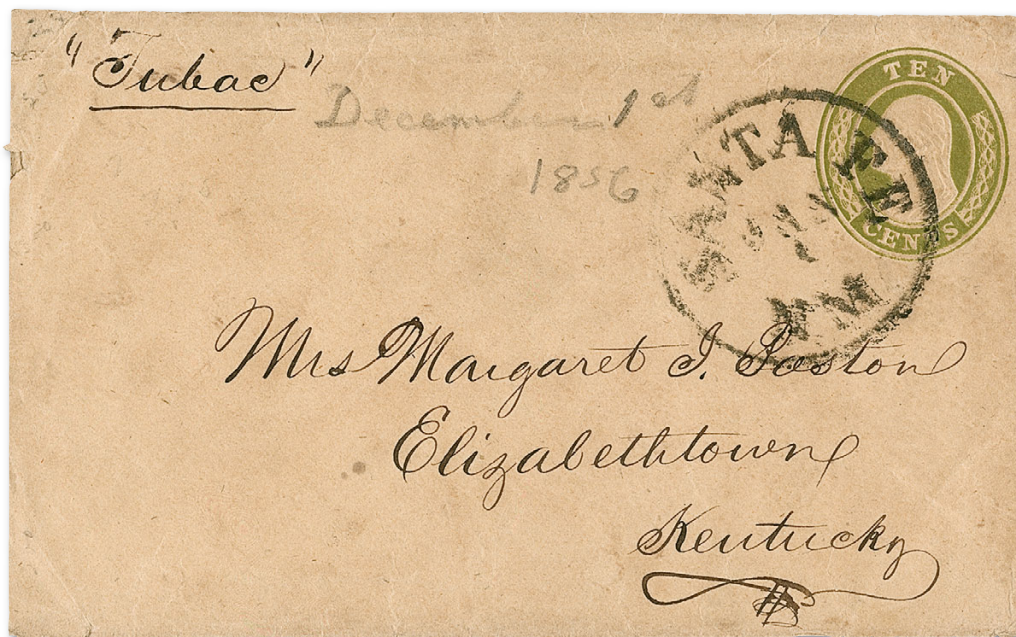 "Tubac"
December 1st
1856
TEN
CENTS
SANTA FE
JAN 1
N.M.
Mrs Margaret J. Poston
Elizabethtown
Kentucky